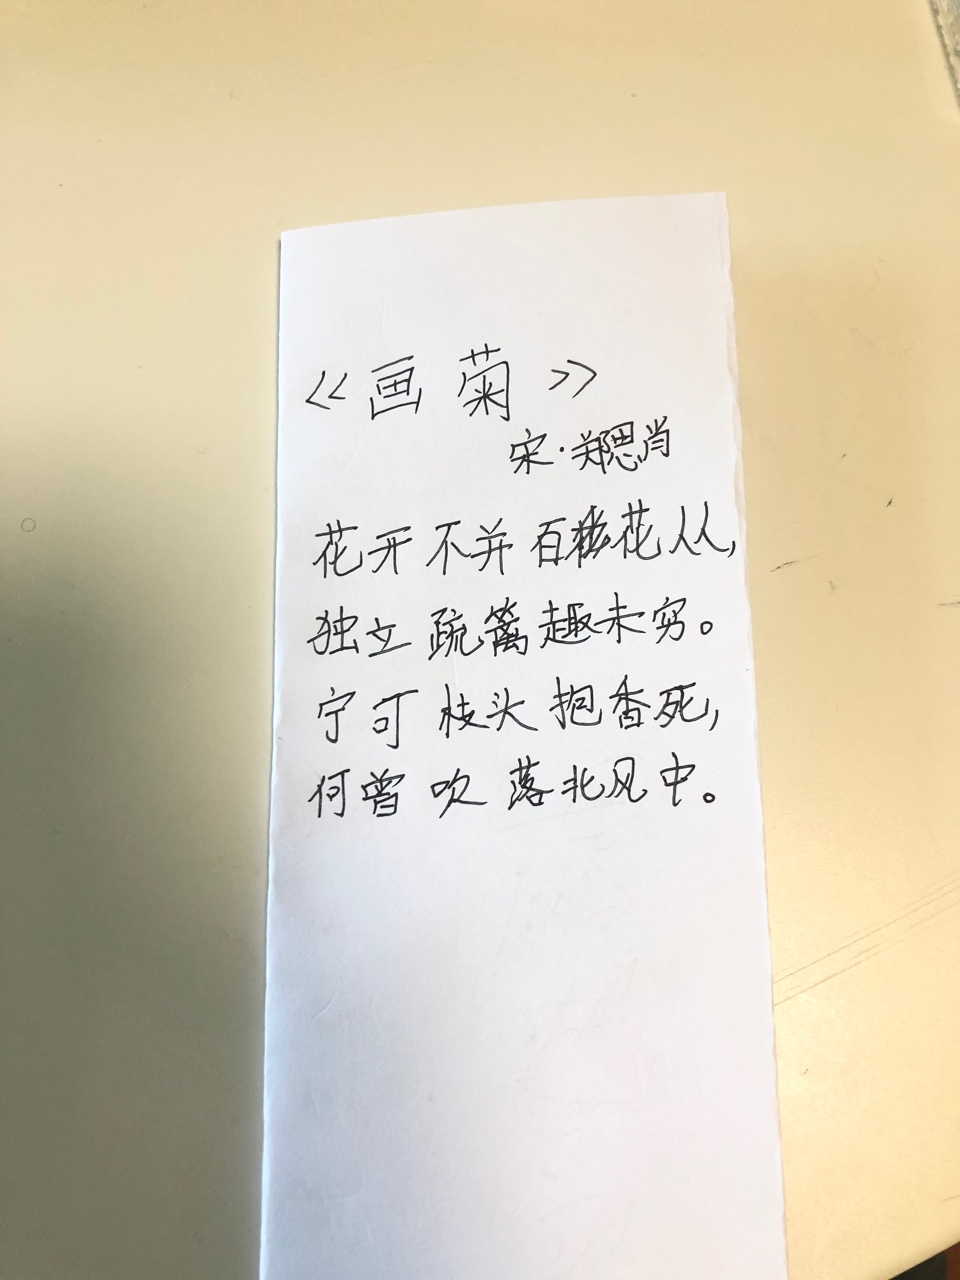 《画菊》
宋·郑思肖
花开不并百花从,
独立疏篱趣未穷。
宁可枝头抱香死,
何曾吹落北风中。